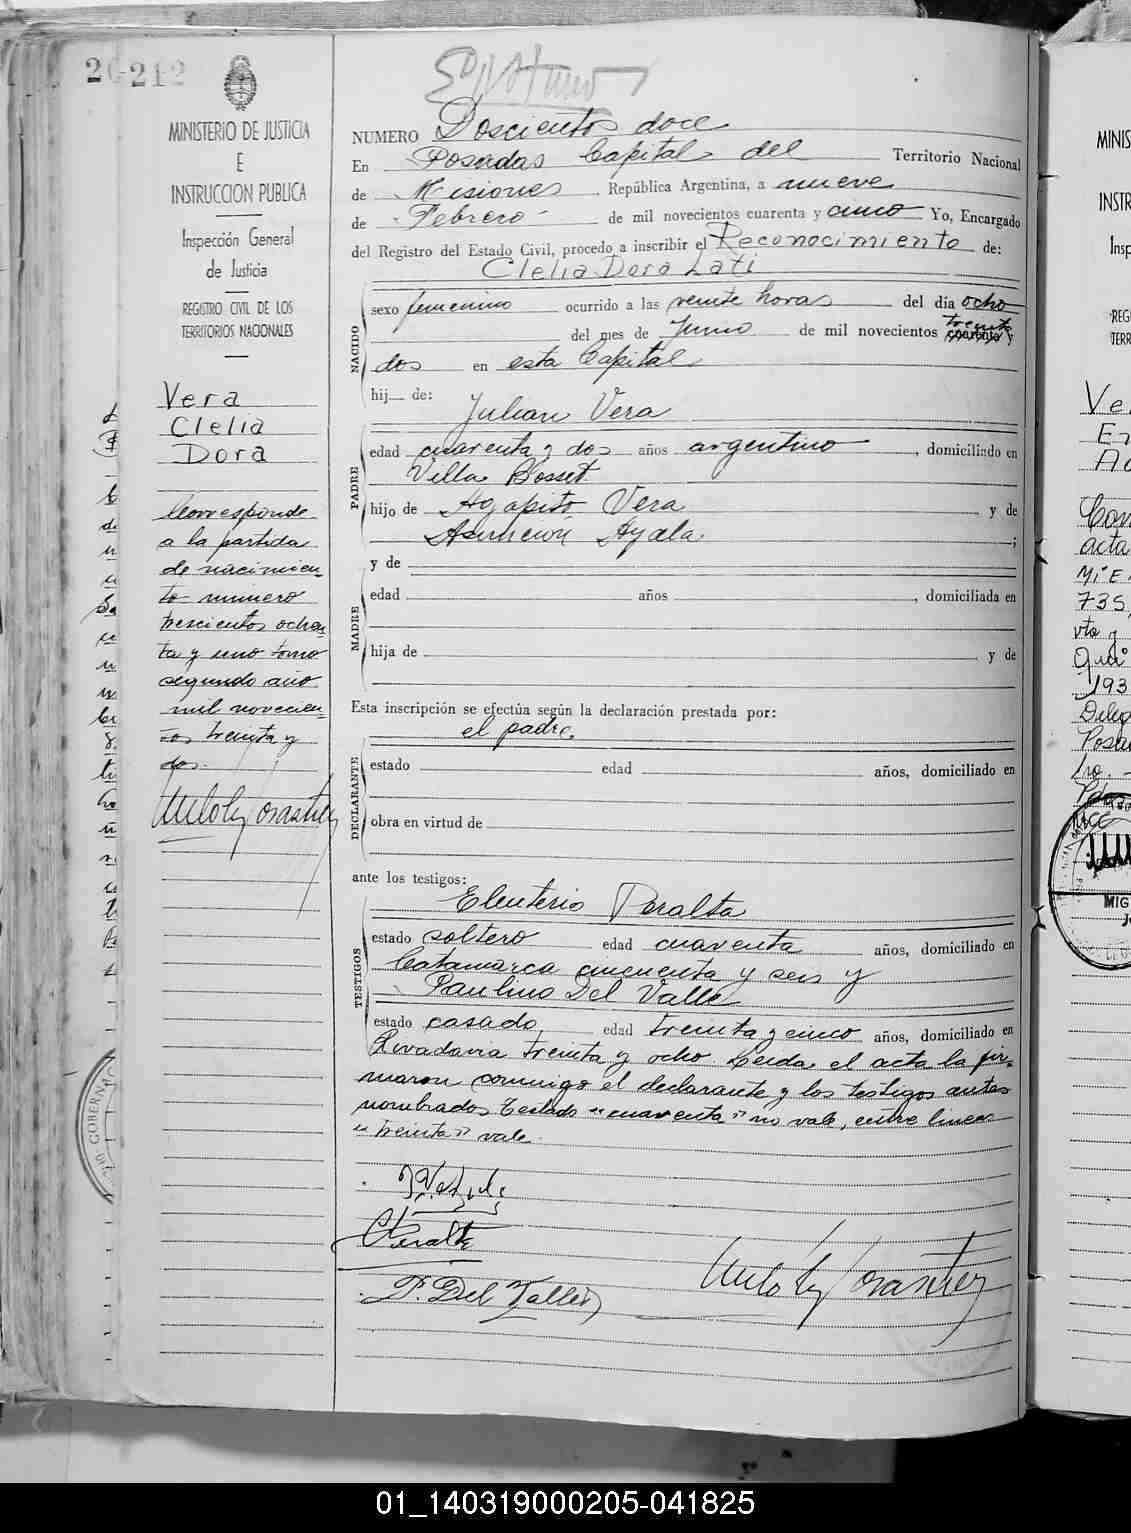 212
MINISTERIO DE JUSTICIA
E
INSTRUCCION PUBLICA
Inspección General
de Justicia
REGISTRO CIVIL DE LOS
TERRITORIOS NACIONALES
Vera
Clelia
Dora
Corresponde
a la partida
de nacimien-
to número
trescientos ochen-
ta y uno tomo
segundo año
mil novecien-
tos treinta y
dos.
NUMERO Doscientos doce
En Posadas Capital del Territorio Nacional
de Misiones República Argentina, a nueve
de Febrero de mil novecientos cuarenta y cinco Yo, Encargado
del Registro del Estado Civil, procedo a inscribir el Reconocimiento de:
Clelia Dora Lati
NACIDO
sexo femenino ocurrido a las veinte horas del día ocho
del mes de Junio de mil novecientos treinta cuarenta y
dos en esta Capital
hij de:
Julian Vera
PADRE
edad cuarenta y dos años argentino, domiciliado en
Villa Bosset
hijo de Agapito Vera y de
Asunción Ayala;
y de
MADRE
edad años, domiciliada en
hija de y de
Esta inscripción se efectúa según la declaración prestada por:
el padre.
DECLARANTE
estado edad años, domiciliado en
obra en virtud de
ante los testigos:
Eleuterio Peralta
TESTIGOS
estado soltero edad cuarenta años, domiciliado en
Catamarca cincuenta y seis y
Paulino Del Valle
estado casado edad treinta y cinco años, domiciliado en
Rivadavia treinta y ocho. Leida el acta la fir-
maron conmigo el declarante y los testigos antes
nombrados Testado "cuarenta" no vale, entre lineas
"treinta" vale.
E Peralta
P. Del Valle
GOBERN
MINIS
INSTR
Insp
REG
TERR
Ve
acta
735,
vta y
193
MIG
01_140319000205-041825